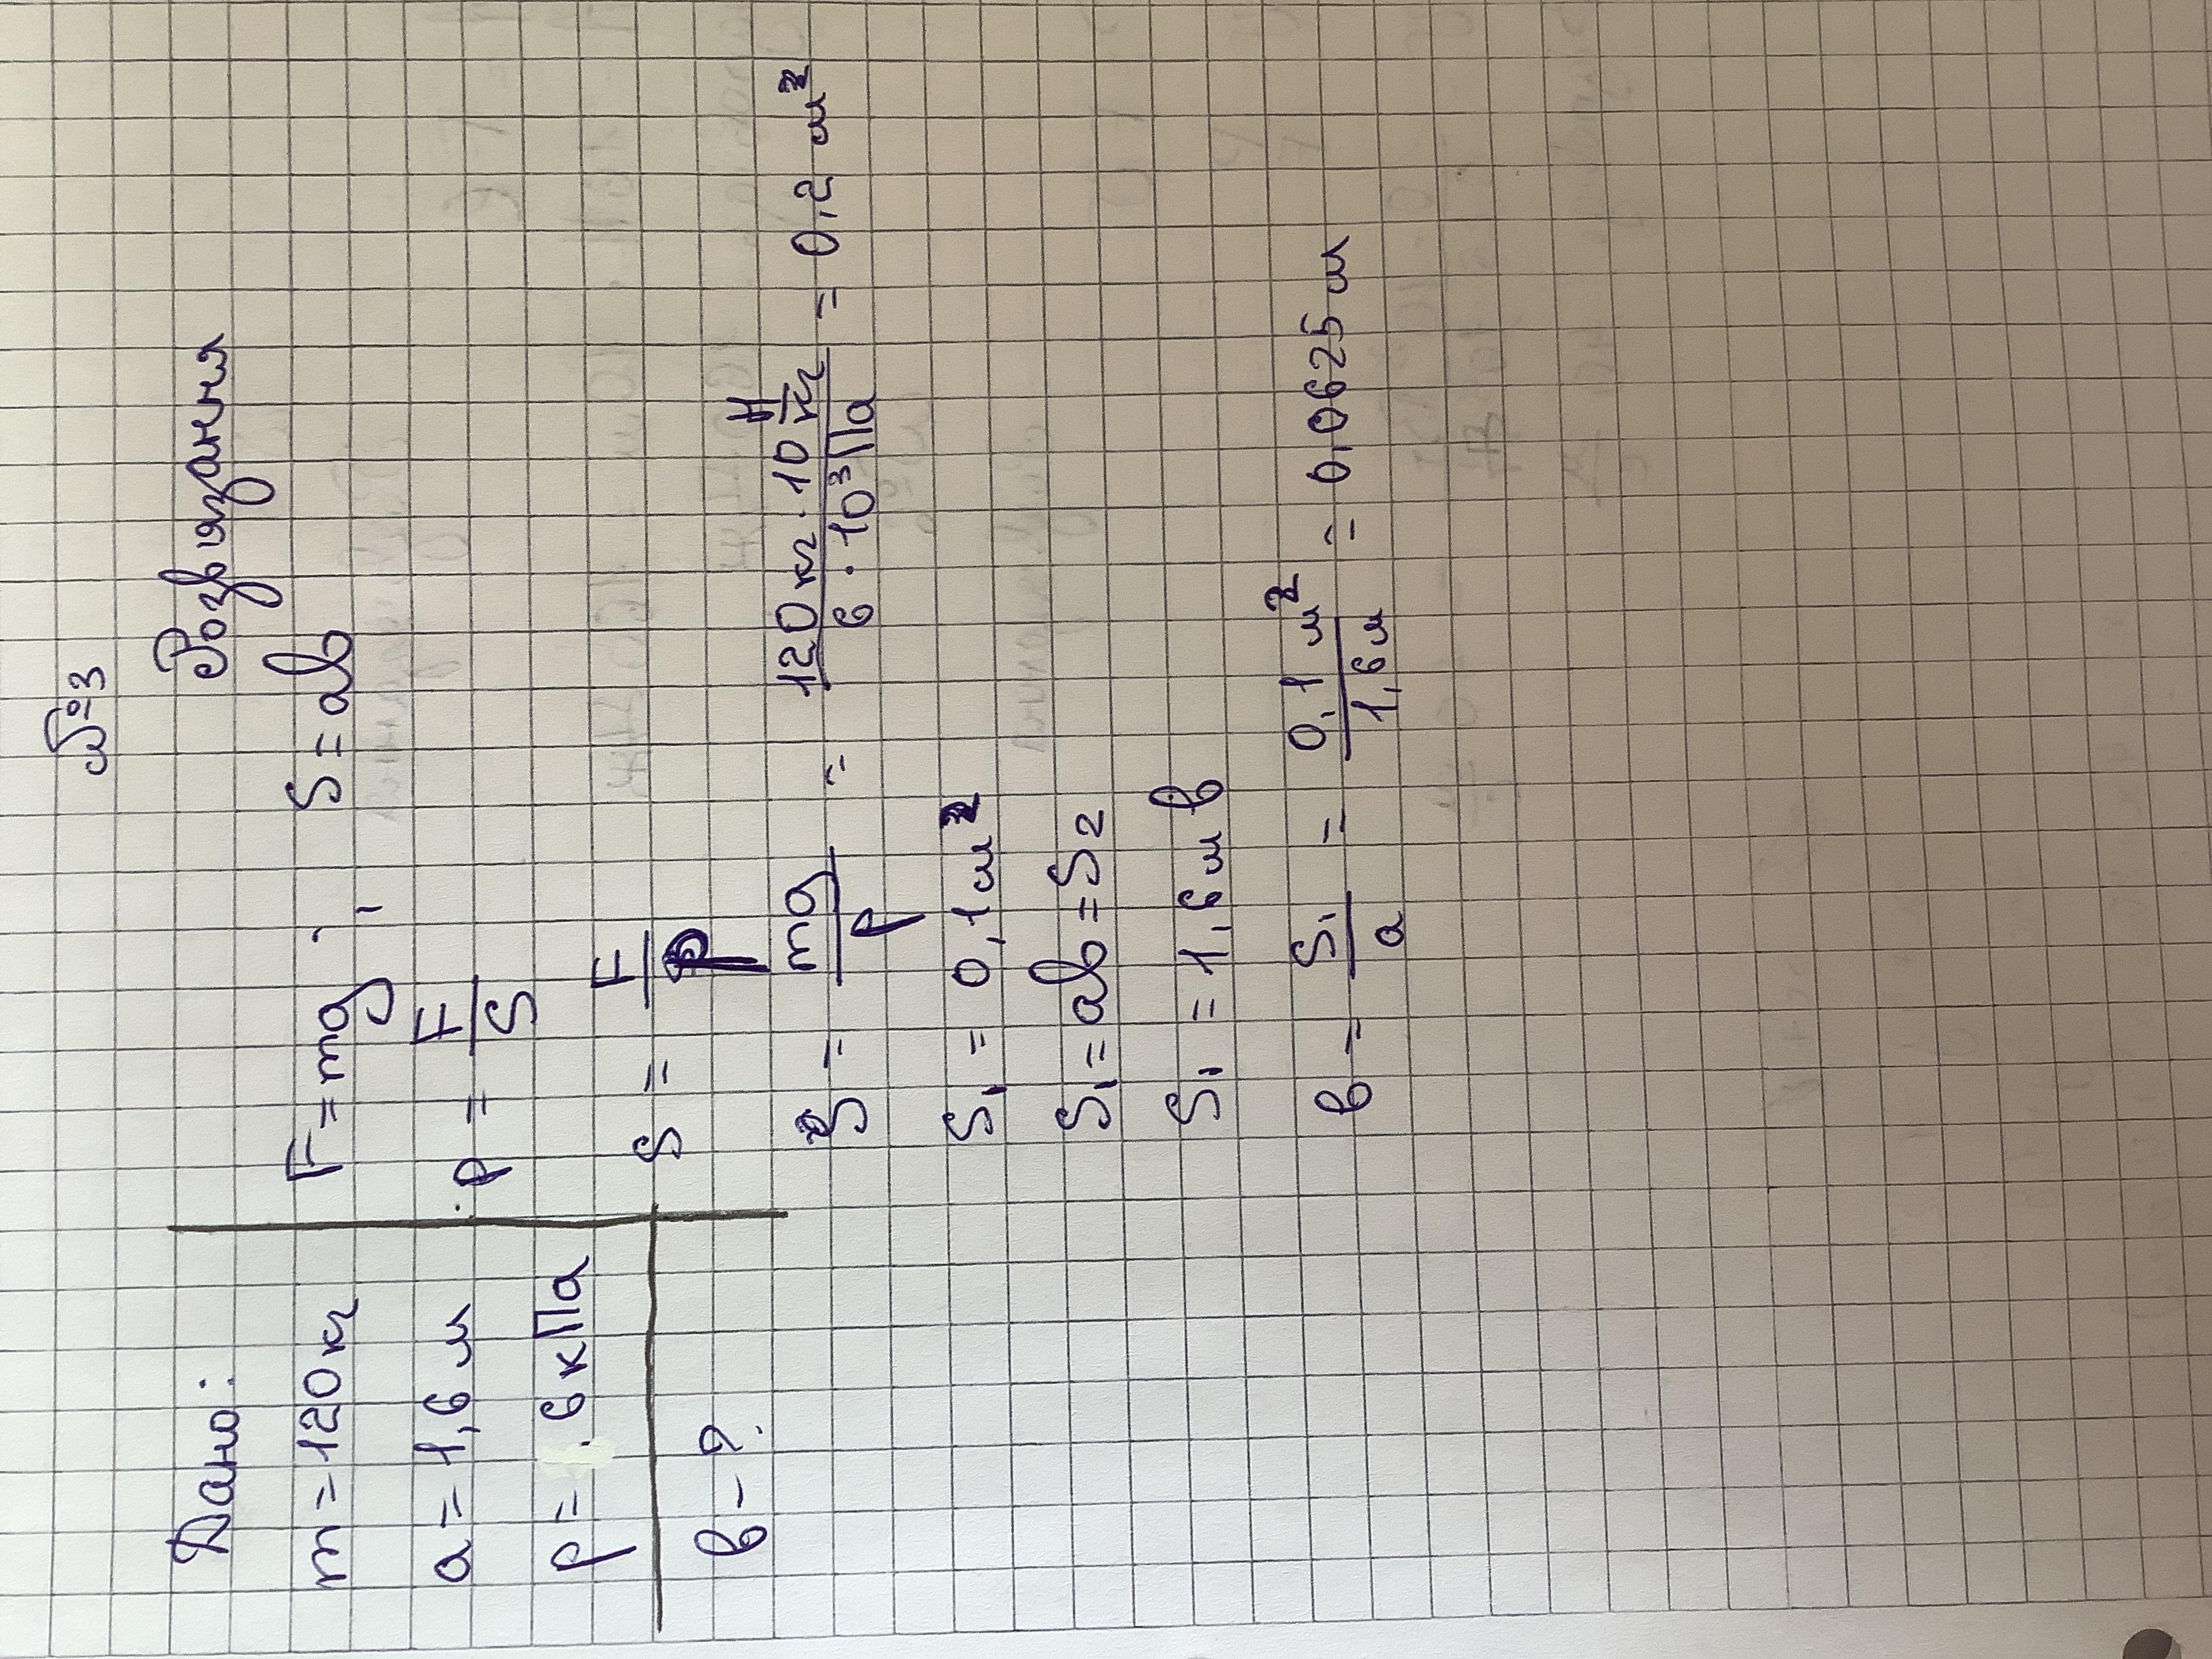 №3
Дано:
m = 120 кг
a = 1,6 м
p = 6 кПа
b - ?
Розвязання
F = mg ; S = ab
p = F/S
S = F/p
S = mg/p = 120 кг · 10 Н/кг / 6 · 10³ Па = 0,2 м²
S₁ = 0,1 м²
S₁ = ab = S₂
S₁ = 1,6 м b
b = S₁/a = 0,1 м²/1,6 м = 0,0625 м